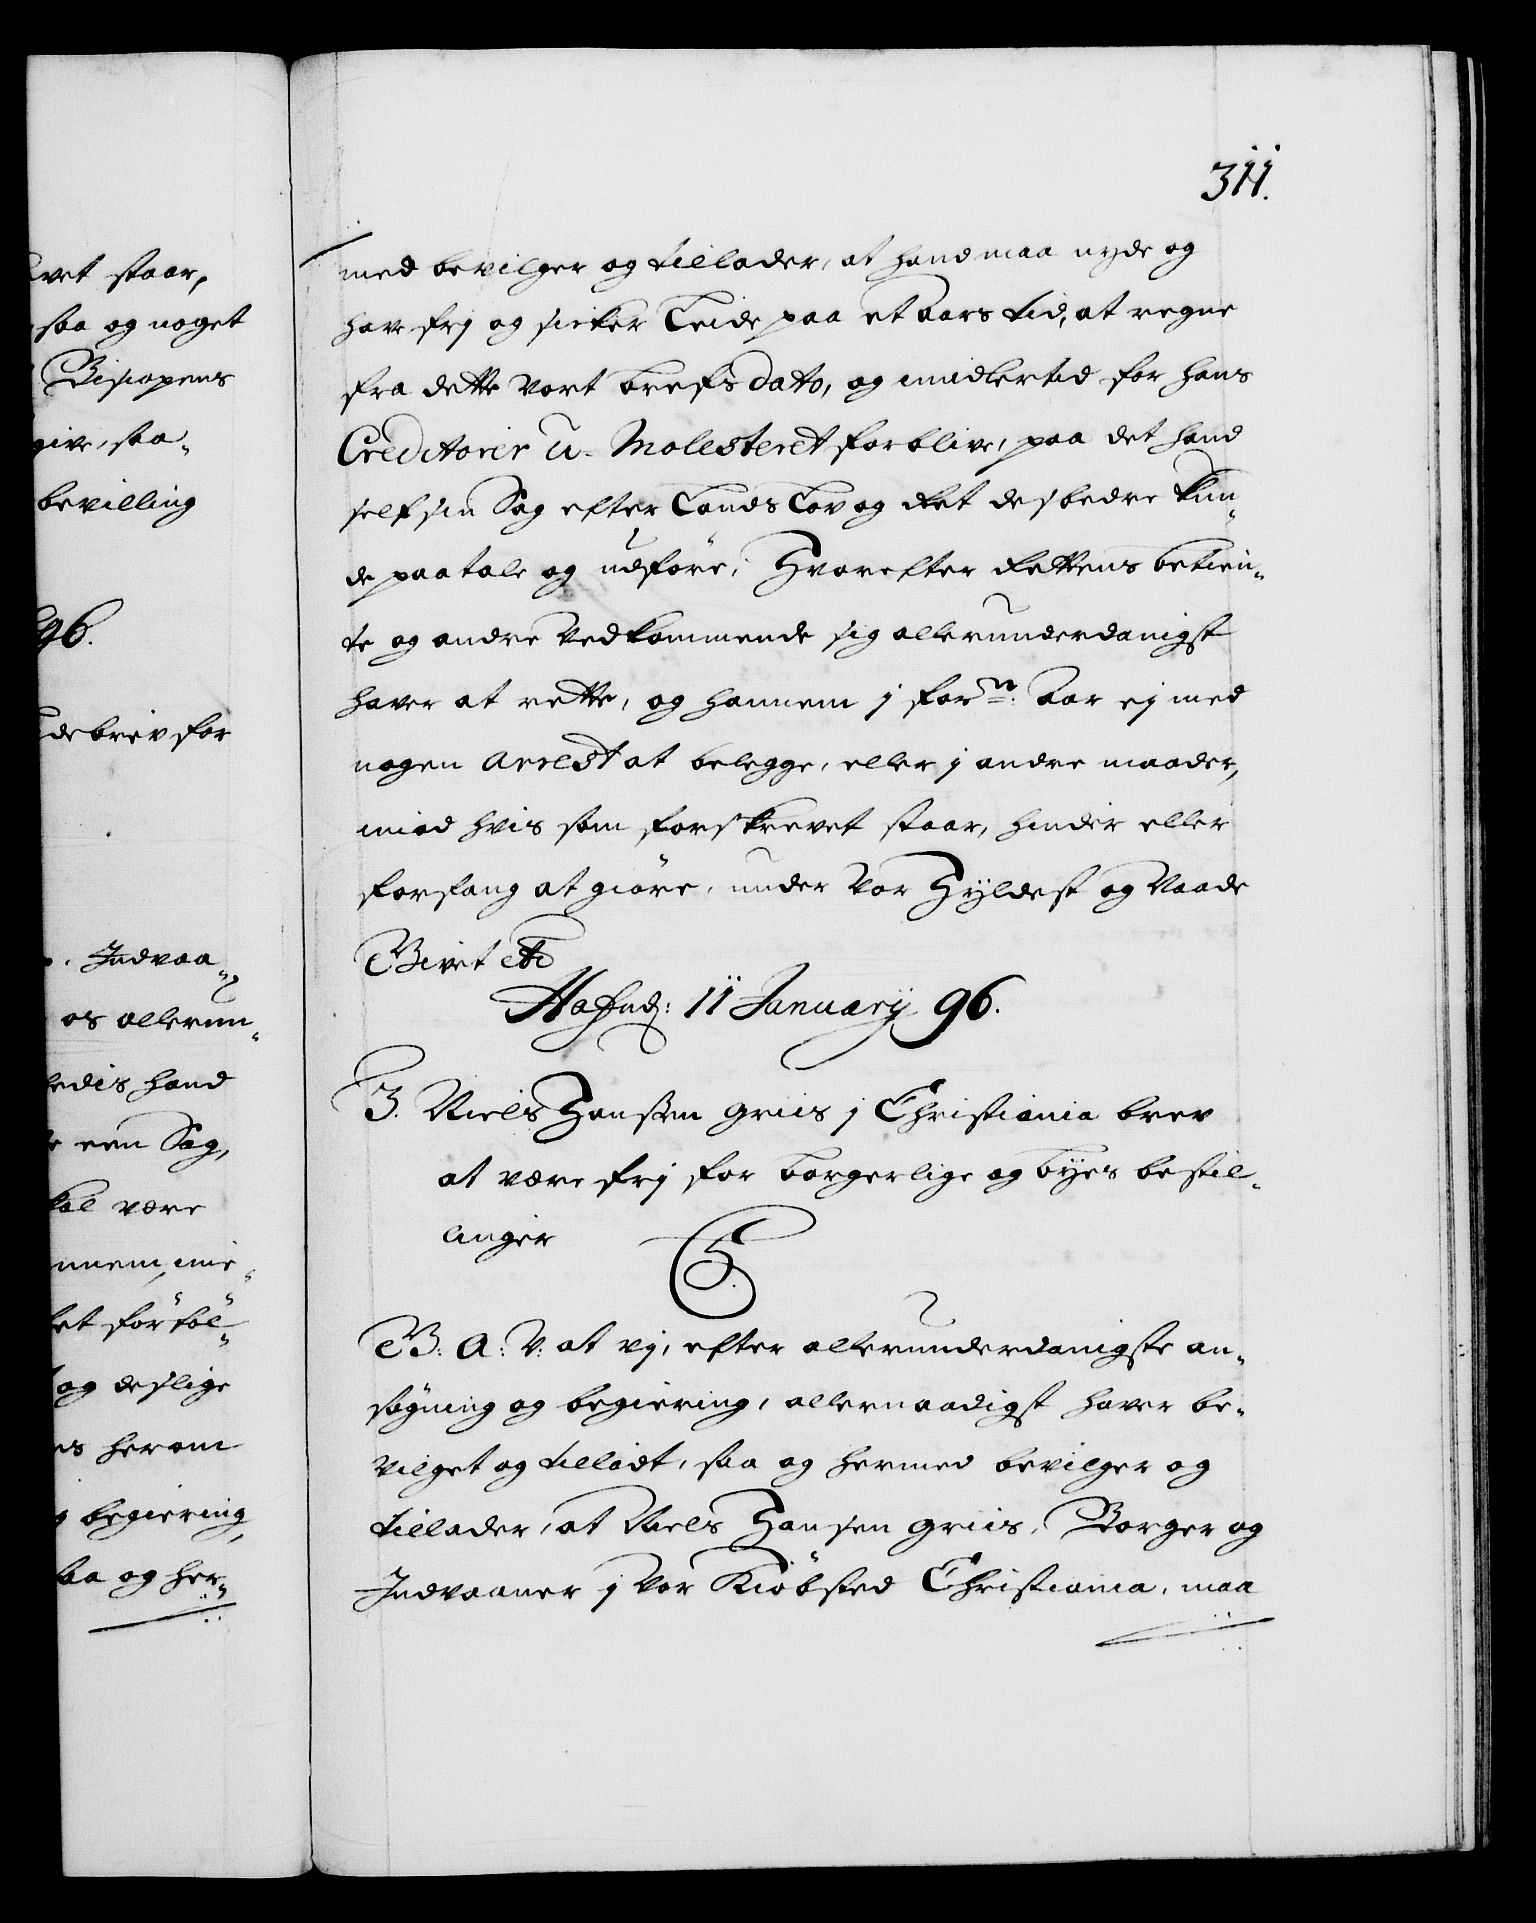 vet staar,
saa og noget
Biscopens
give, saa-
bevilling
96.
debrev for
Indvaa-
os allerun-
ledis hand
een Sag,
kal være
nnem, imē-
et førtøl-
og deslige
es herom
begiering,
saa og her-
311.
med bevilger og tillader, at hand maa nyde og
have frj og sicker Leide paa et Aars tid, at regne
fra dette Vort brefs dato, og imidlertid for hans
Creditorer U-Molesteret forblive, paa det hand
self sin Sag efter Lands Lov og Ret desbedre kun-
de paatale og udføre; Hvorefter Rettens betien-
te og andre Vedkommende sig allerunderdanigst
haver at rette, og hannem j forne. Aar ej med
nogen Arrest at belegge, eller j andre maader,
imod hvis som forskrevet staar, hinder eller
forfang at giøre, under Vor Hyldest og Naade
Givet etc
Haffnd: 11 January 96.
3. Niels Hanssen Griis j Christiania brev
at være frj for borgerlige og byes bestil-
linger
C5.
G. A. V: at vj, efter allerunderdanigste an-
søgning og begiering, allernaadigst haver be-
vilget og tilladt, saa og hermed bevilger og
tillader, at Niels Hansen Griis, Borger og
Indvaaner j Vor Kiøbsted Christiania, maa